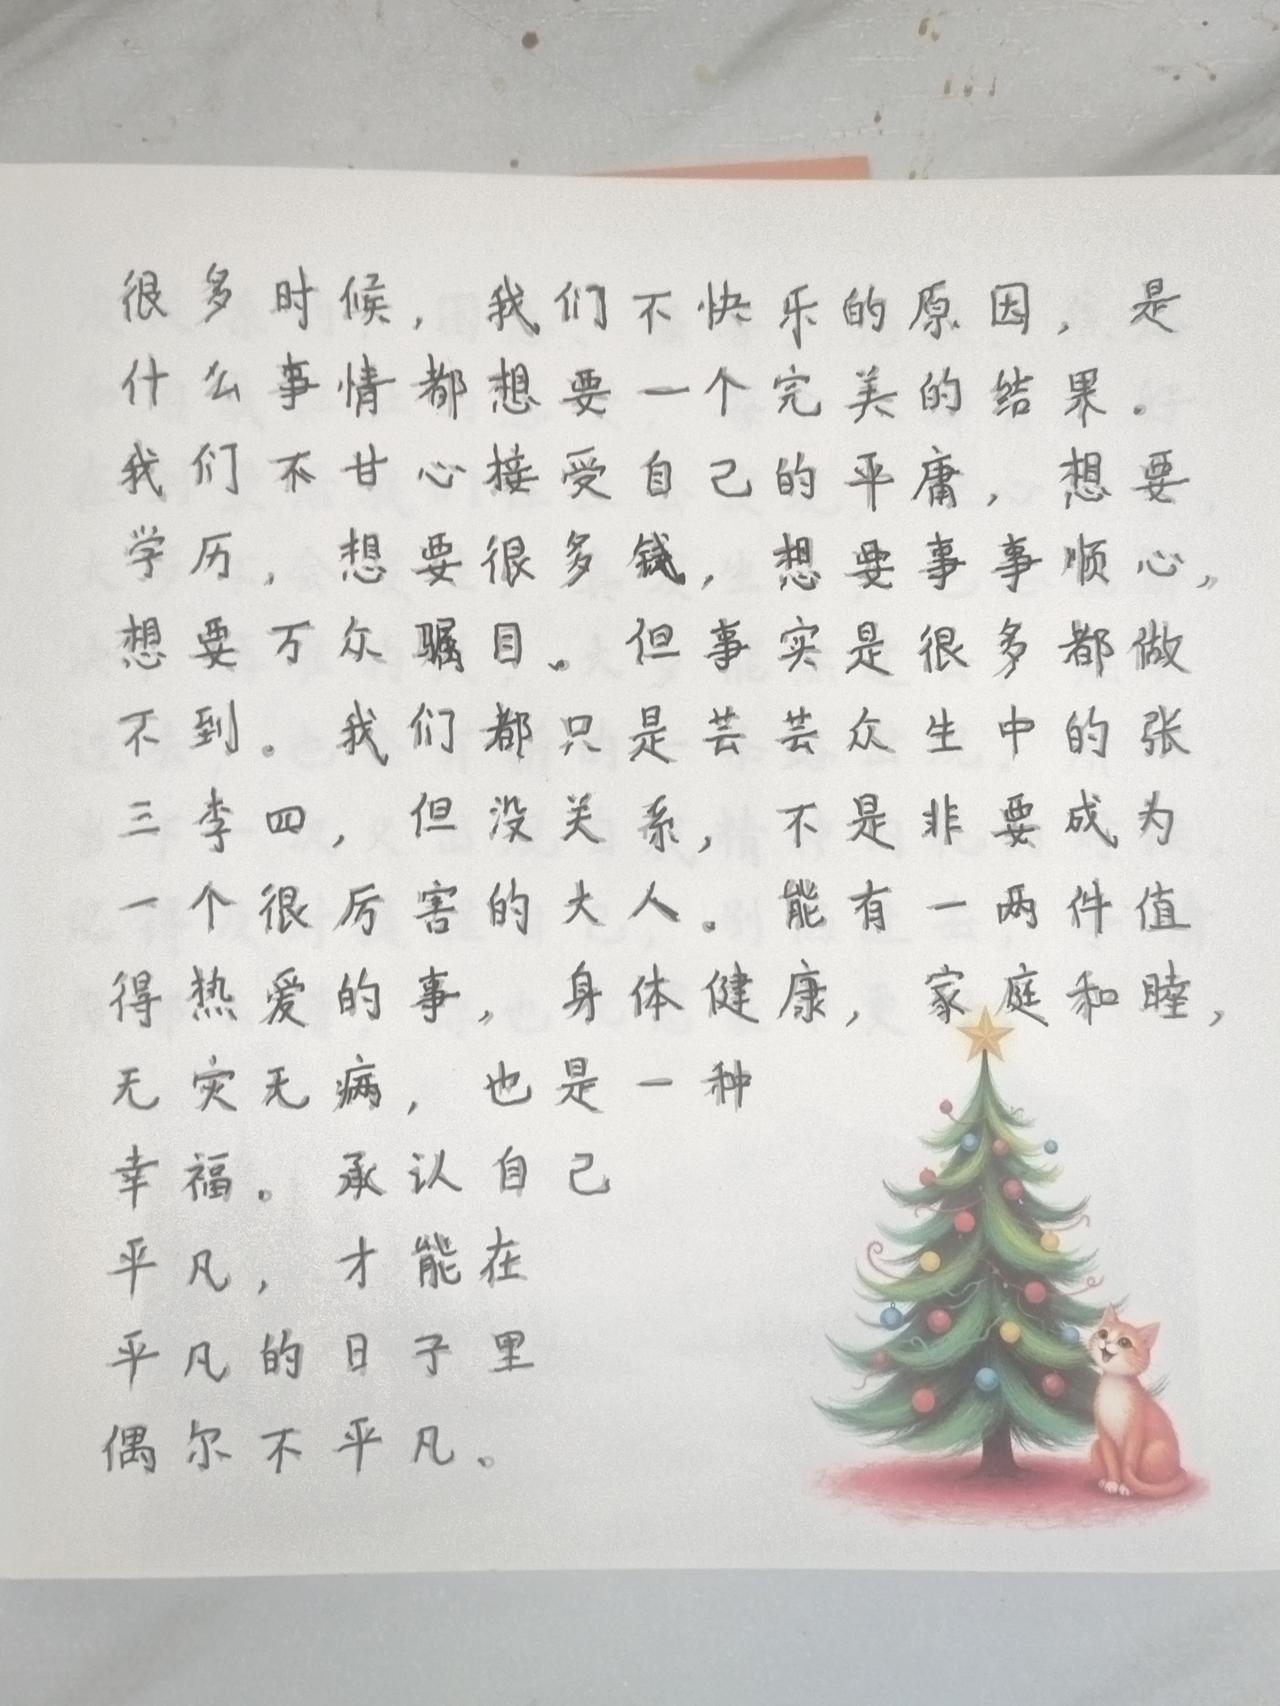 很多时候，我们不快乐的原因，是
什么事情都想要一个完美的结果。
我们不甘心接受自己的平庸，想要
学历，想要很多钱，想要事事顺心，
想要万众瞩目。但事实是很多都做
不到。我们都只是芸芸众生中的张
三李四，但没关系，不是非要成为
一个很厉害的大人。能有一两件值
得热爱的事，身体健康，家庭和睦，
无灾无病，也是一种
幸福。承认自己
平凡，才能在
平凡的日子里
偶尔不平凡。